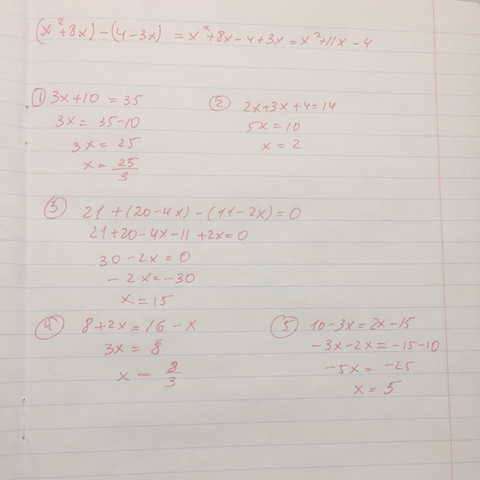 (x²+8x)-(4-3x) = x²+8x-4+3x = x²+11x-4
① 3x+10 = 35
3x = 35-10
3x = 25
x = 25/3
② 2x+3x+4=14
5x = 10
x = 2
③ 21+(20-4x)-(11-2x)=0
21+20-4x-11+2x=0
30-2x=0
-2x=-30
x=15
④ 8+2x=16-x
3x=8
x = 8/3
⑤ 10-3x=2x-15
-3x-2x=-15-10
-5x = -25
x = 5